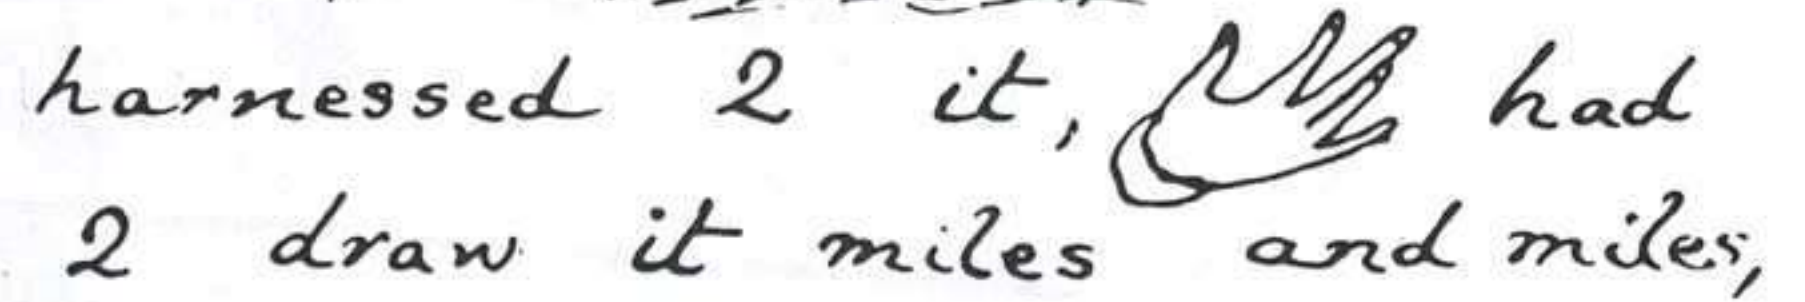 harnessed 2 it, had
2 draw it miles and miles,